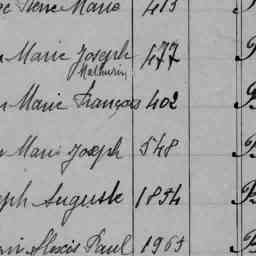 Pierre Marie 415
Marie Joseph 477
Mathurin
Marie François 402
Marie Joseph 548
Auguste 1854
Alexis Paul 1965